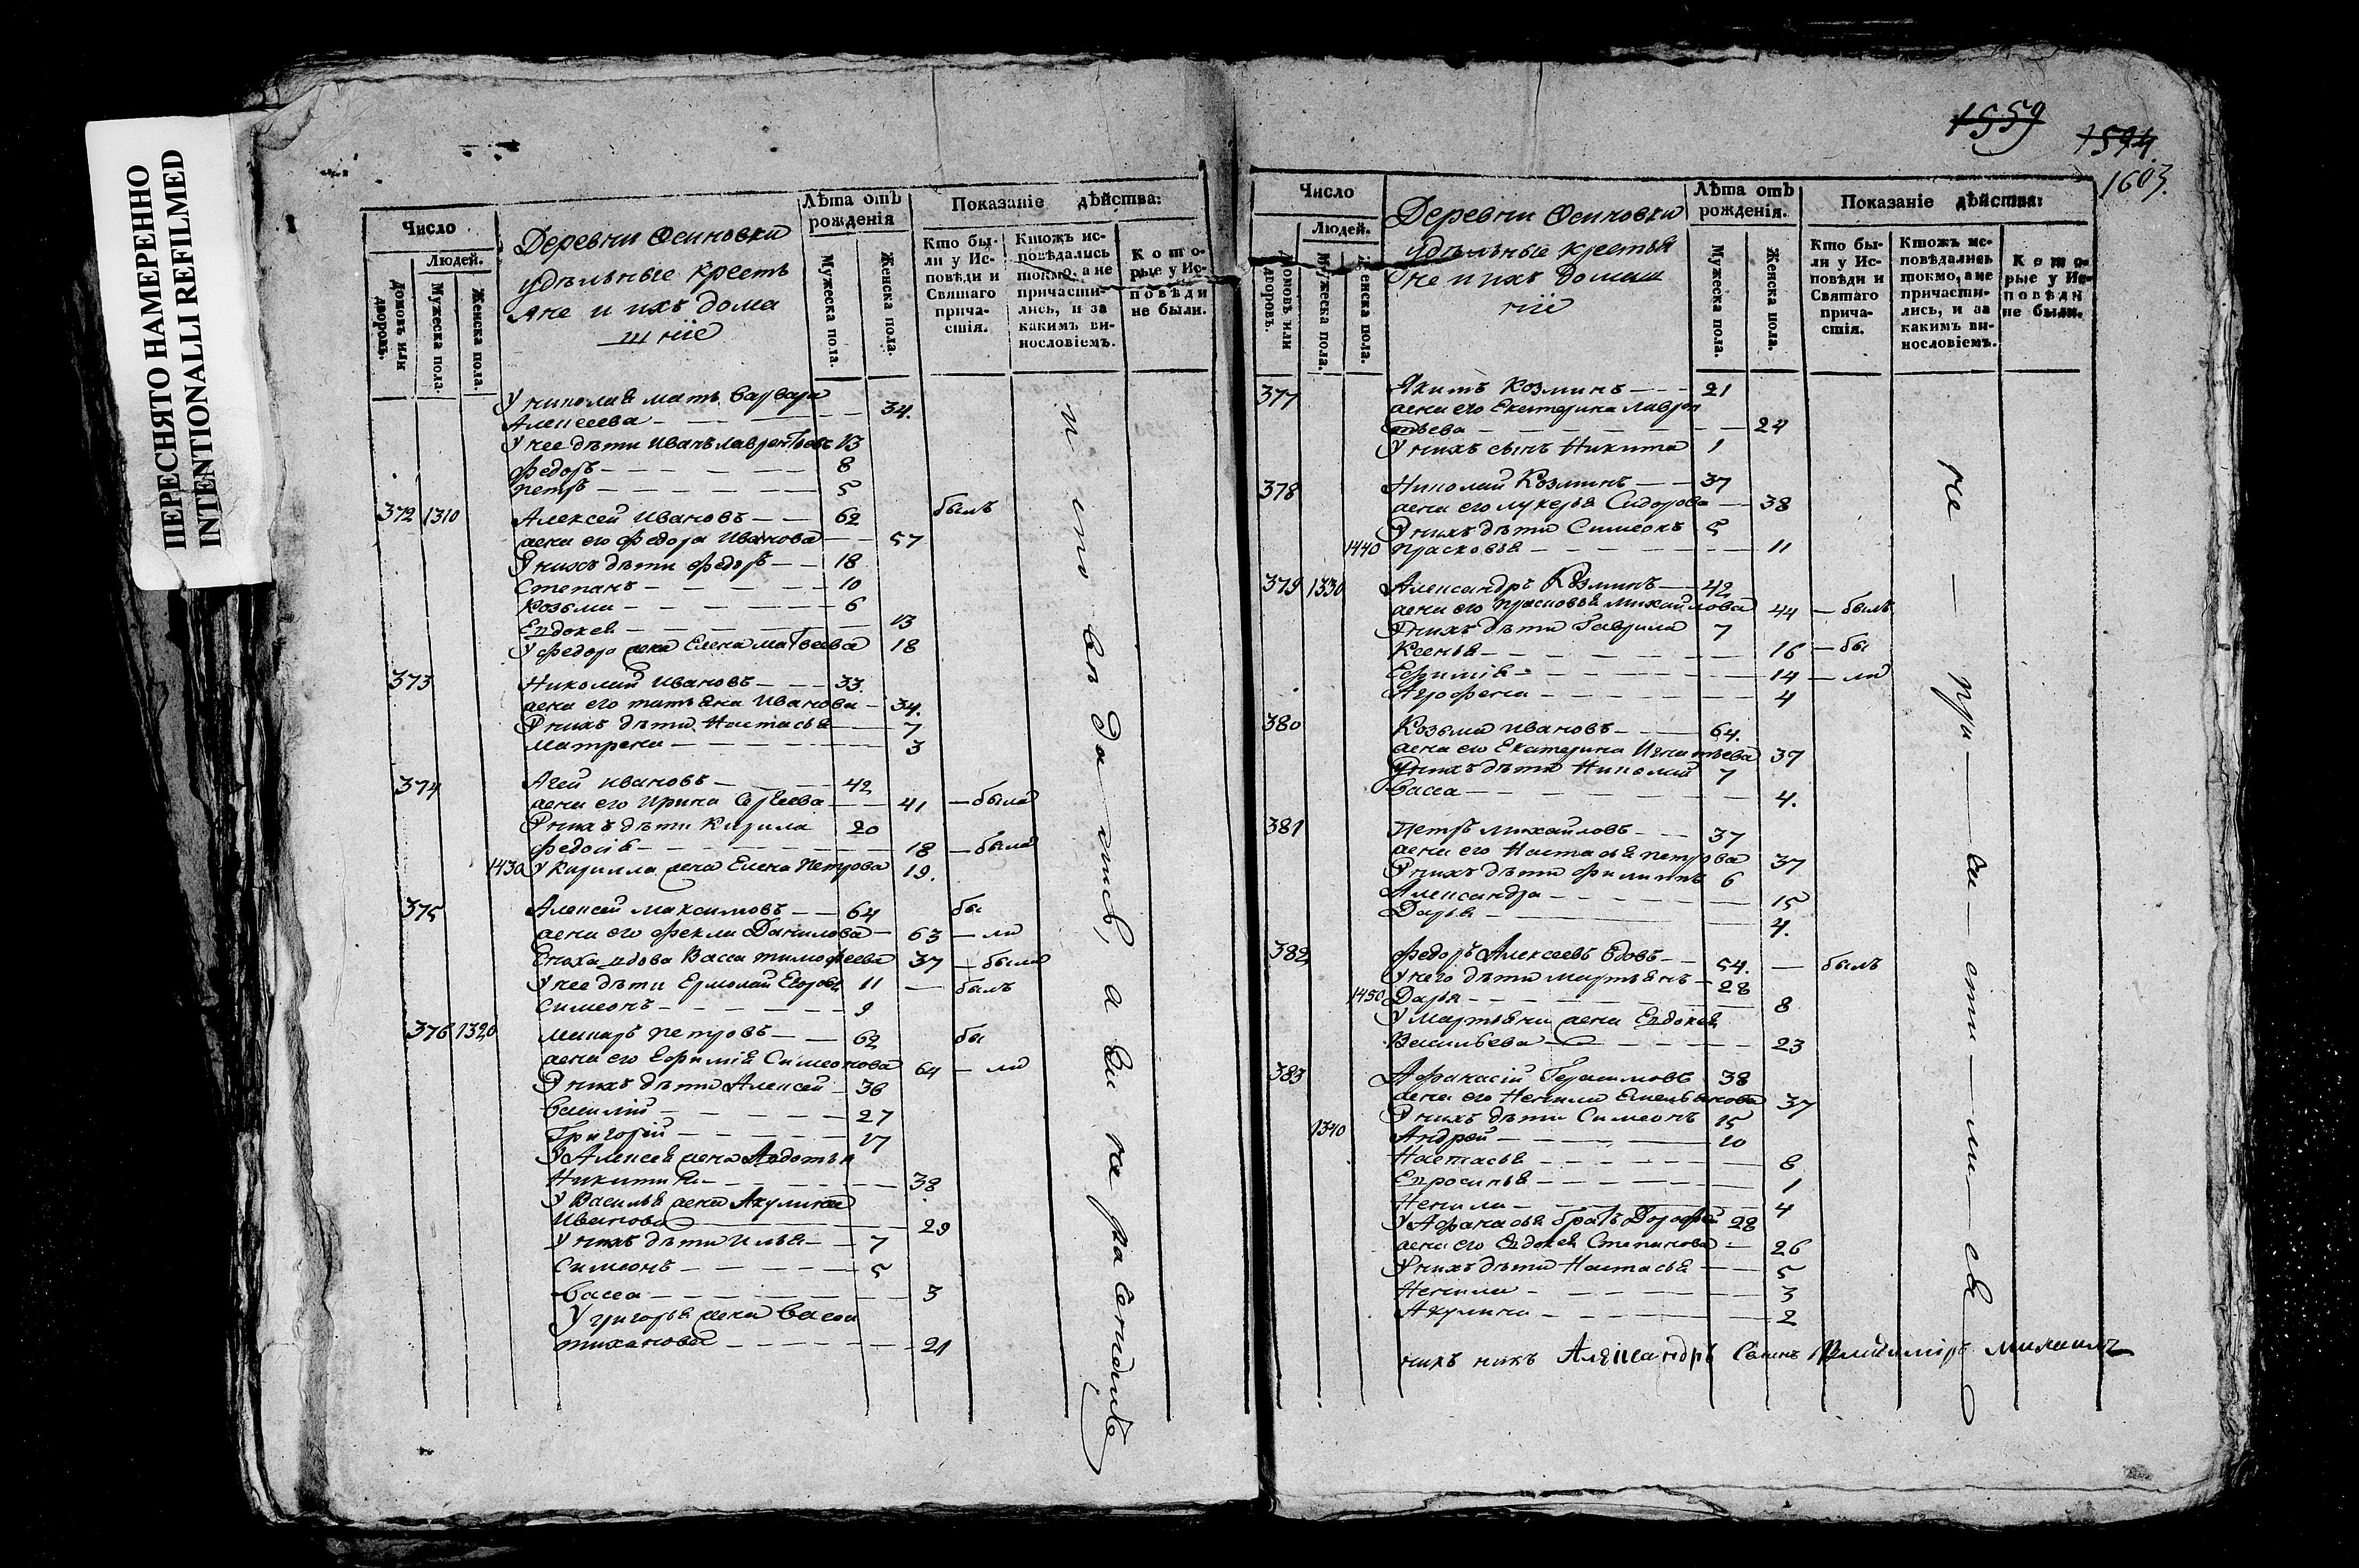 ПЕРЕСНЯТО НАМЕРЕННО
INTENTIONALLI REFILMED
Число
Людей.
Домовъ или дворовъ.
Мужеска пола.
Женска пола.
Деревни Осиновки
удѣльные кресть
яне и ихъ дома
шніе
Лѣта отъ рожденія
Мужеска пола.
Женска пола.
Показаніе дѣйства:
Кто бы-
ли у Ис-
повѣди и
Святаго
прича-
стія.
Ктожъ ис-
повѣдались
токмо, а не
причасти-
лись, и за
какимъ ви-
нословіемъ.
Кото-
рые у Ис-
повѣди
не были.
У Николая мать Варвара
Алексеева — 34.
У нее дѣти Иванъ Лаврентьевъ 13
Федоръ — 8
Петръ — 5
372 1310 Алексей Ивановъ — 62 былъ
жена его Федора Иванова — 57
У нихъ дѣти Федоръ — 18
Степанъ — 10
Козьма — 6
Евдокея — 13
У Федора жена Елена Матвеева 18
373 Николай Ивановъ — 33.
жена его Татьяна Иванова — 34.
У нихъ дѣти Настасья — 7
Матрена — 3
374 Агей Ивановъ — 42
жена его Ирина Сергеева — 41 — была
У нихъ дѣти Кирила 20
Федосія — 18 — была
1430 У Кирилла жена Елена Петрова 19.
375 Алексей Максимовъ — 64 бы
жена его Фекла Данилова — 63 — ли
Сноха вдова Васса Тимофеева 37 — была
У нее дѣти Ермолай Егоровъ 11 — былъ
Симеонъ — 9
376 1320 Макаръ Петровъ — 62 бы
жена его Ефимія Симеонова 64 — ли
У нихъ дѣти Алексей — 36
Василій — 27
Григорій — 17
У Алексея жена Авдотья
Никитина — 38
У Василья жена Акулина
Иванова — 29
У нихъ дѣти Илья — 7
Симеонъ — 5
Васса — 3
У Григорья жена Васса
Тиханова — 21
1559
1594
1603.
Число
Людей.
Домовъ или дворовъ.
Мужеска пола.
Женска пола.
Деревни Осиновки
удѣльные крестья
не и ихъ домаш
ніе
Лѣта отъ рожденія.
Мужеска пола.
Женска пола.
Показаніе дѣйства:
Кто бы-
ли у Ис-
повѣди и
Святаго
прича-
стія.
Ктожъ ис-
повѣдались
токмо, а не
причасти-
лись, и за
какимъ ви-
нословіемъ.
Кото-
рые у Ис-
повѣди
не были.
377 Якимъ Козминъ — 21
жена его Екатерина Лаврен
тьева — 24
У нихъ сынъ Никита 1
378 Николай Козминъ — 37
жена его Лукерья Сидорова — 38
У нихъ дѣти Симеонъ 5
1440 Прасковья — 11
379 1330 Александръ Козминъ — 42
жена его Прасковья Михайлова 44 — былъ
У нихъ дѣти Гаврила 7
Ксенья — 16 — бы
Ефимія — 14 — ли
Агрофена — 4
380 Козьма Ивановъ — 64.
жена его Екатерина Игнатьева 37
У нихъ дѣти Николай 7
Васса — 4.
381 Петръ Михайловъ — 37
жена его Настасья Петрова 37
У нихъ дѣти Филиппъ 6
Александра — 15
Дарья — 4.
382 Федоръ Алексеевъ вдовъ — 54. — былъ
У него дѣти Мартьянъ — 28
1450 Дарья — 8
У Мартьяна жена Евдокея
Васильева — 23
383 Афанасій Герасимовъ 38
жена его Ненила Емельянова 37
У нихъ дѣти Симеонъ 15
1340 Андрей — 10
Настасья — 8
Епросинья — 1
Ненила — 4
У Афанасья братъ Дорофей 28
жена его Евдокея Степанова — 26
У нихъ дѣти Настасья — 5
Ненила — 3
Акулина — 2
не — при — ча — сти — ли — сь